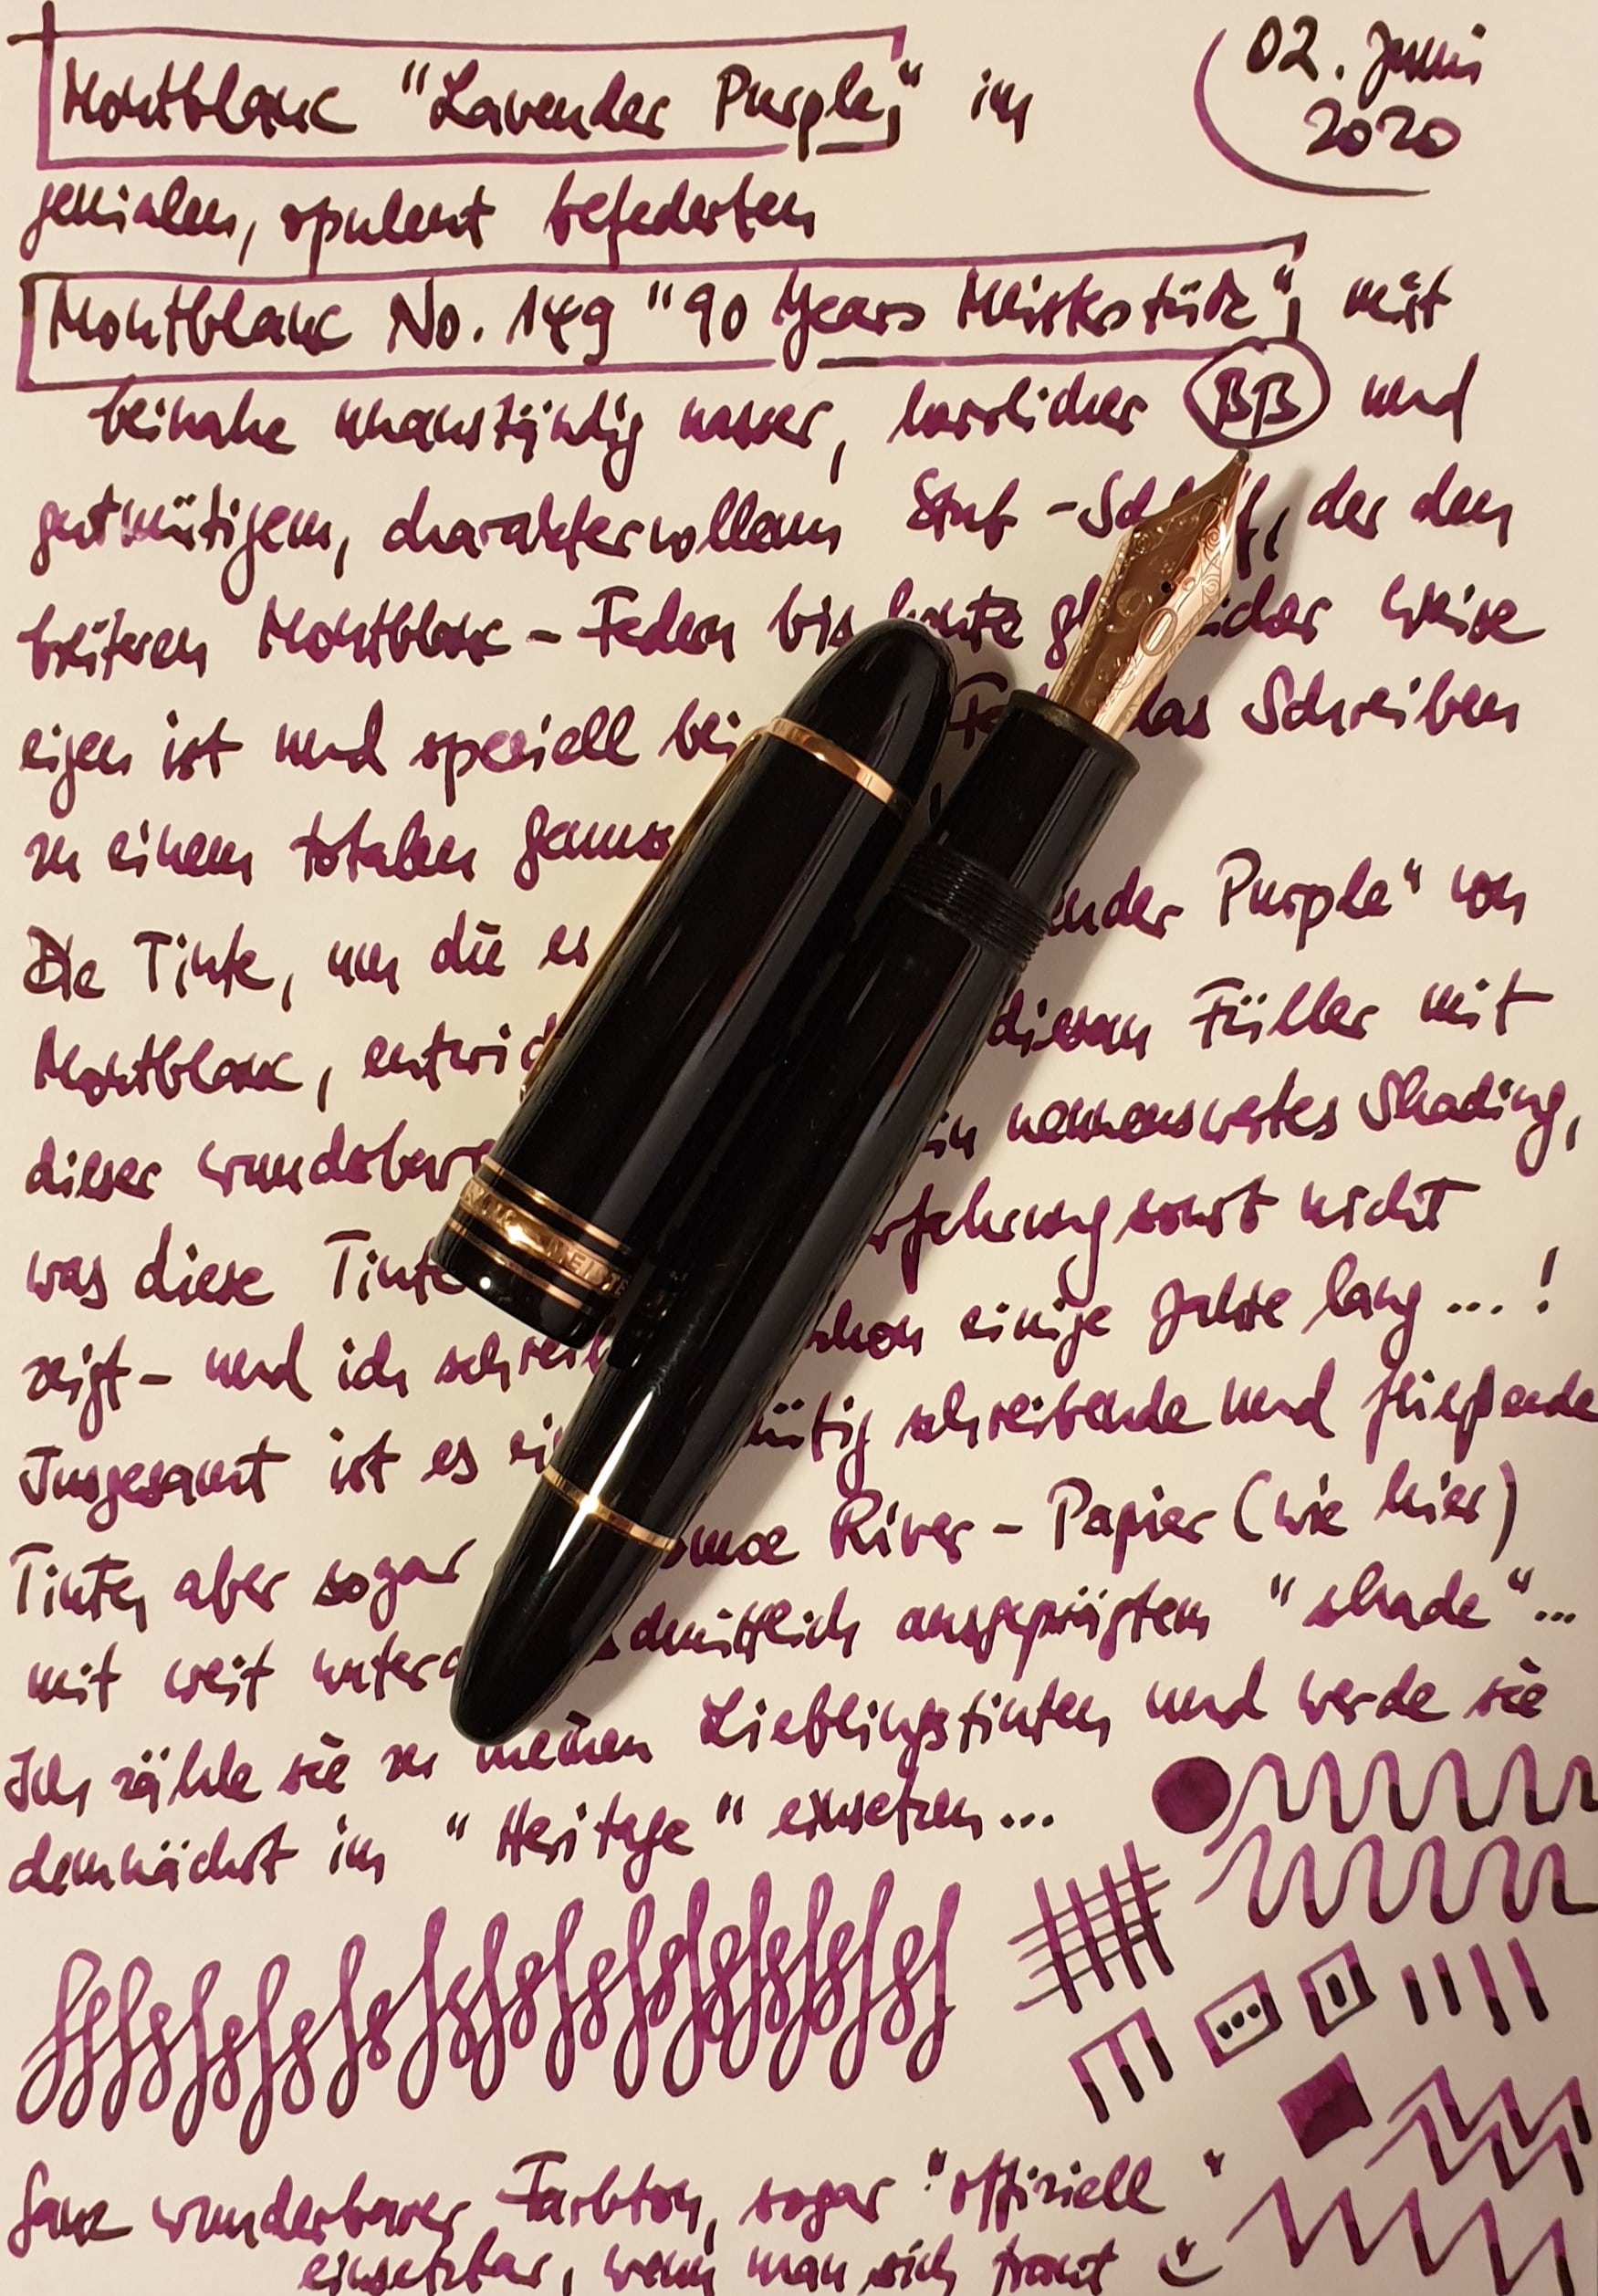 Montblanc "Lavender Purple" im
02. Juni
2020
genialen, opulent befederten
Montblanc No. 149 "90 Years Meisterstück", mit
beinahe unanständig nasser, herrlicher BB und
gutmütigem, charaktervollem Stub-Schliff, der den
breiteren Montblanc-Federn bis heute weise
eigen ist und speziell bei das Schreiben
zu einem totalen
Die Tinte, um die es ender Purple" von
Montblanc, entwic diesem Füller mit
dieser wunderbare in nennenswertes Shading,
was diese Tinte rfahrung sonst nicht
zeigt - und ich schreib schon einige Jahre lang ... !
Insgesamt ist es ei mütig schreibende und fließende
Tinte, aber sogar omoe River-Papier (wie hier)
mit weit unterd chnittlich ausgeprägtem "shade"...
Ich zähle sie zu meinen Lieblingstinten und werde sie
demnächst im "Heritage" einsetzen...
Ganz wunderbarer Farbton, sogar "offiziell"
einsetzbar, wenn man sich traut
MEISTE